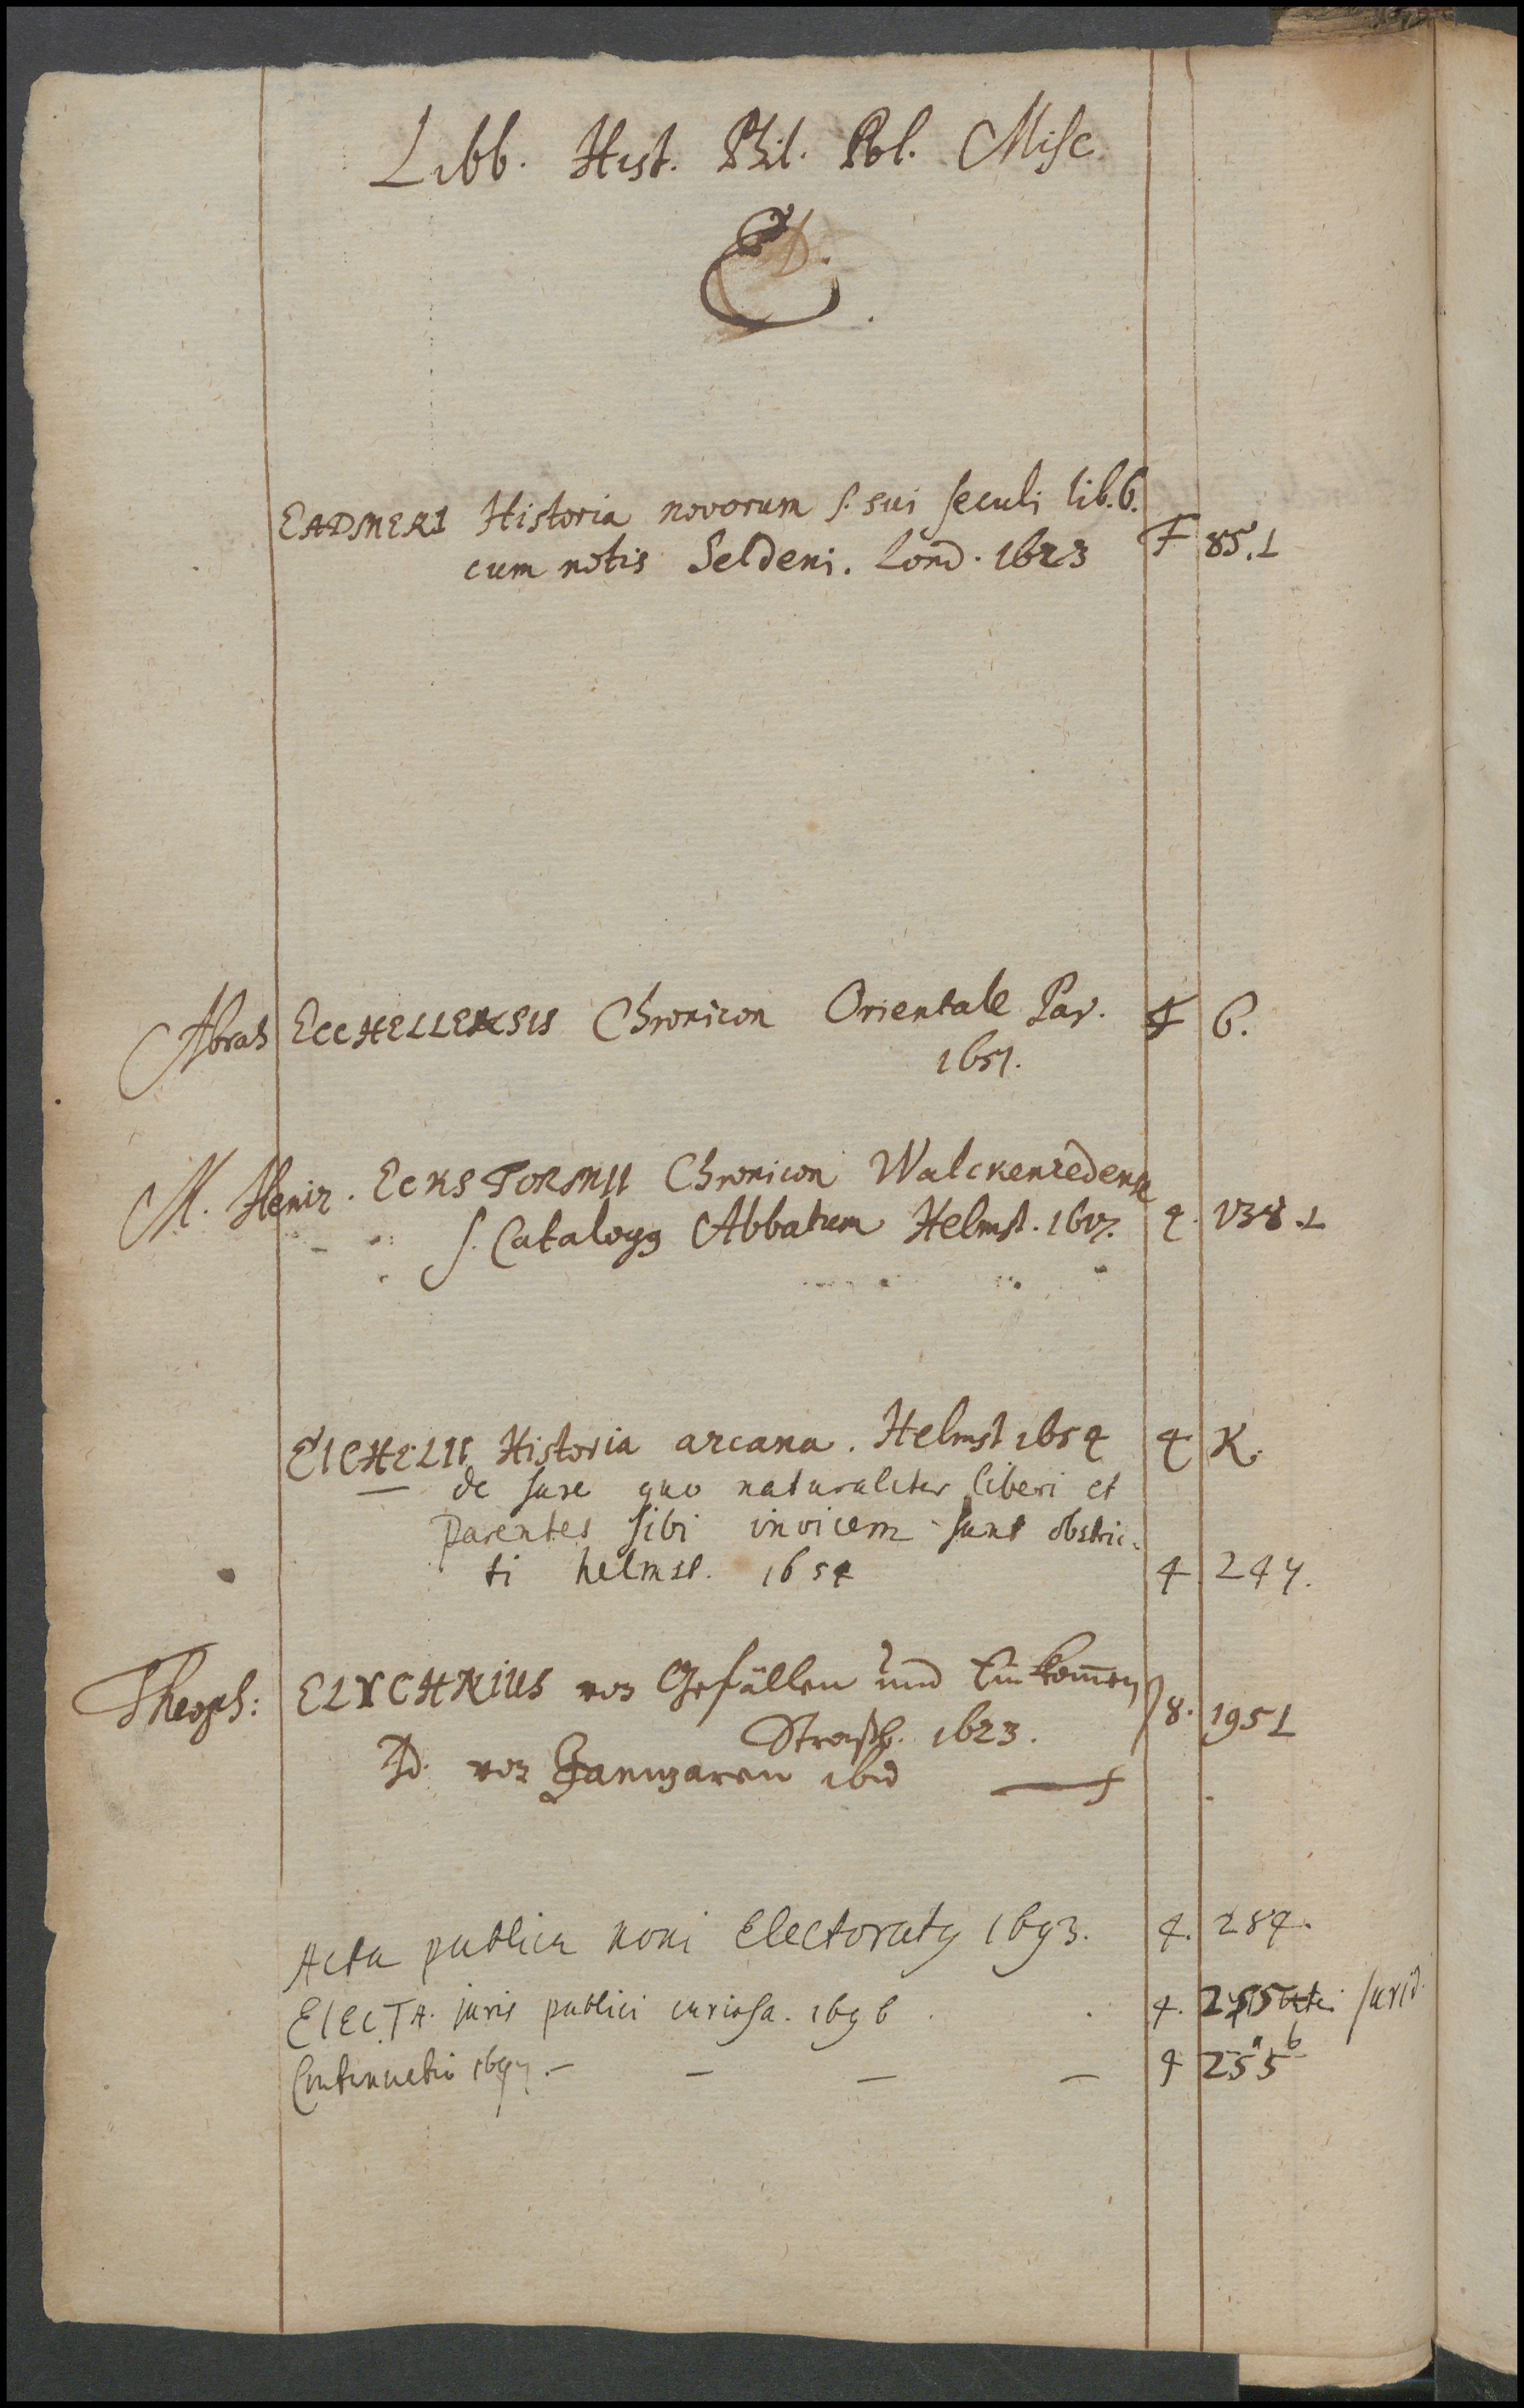 Libb. Hist. Phil. Pol. Misc.
E.
EADMERI Historia novorum s. sui seculi lib. 6.
cum notis Seldeni. Lond. 1623 F 85. L
Abrah ECCHELLENSIS Chronicon Orientale Par. F 6.
1651.
M. Henir. ECKSTORMII Chronicon Walckenredense
s. Catalogg Abbatum Helmst. 1617. 4. 138. L
EICHELII Historia arcana. Helmst 1654 4 K.
— de Jure quo naturaliter liberi et
parentes sibi invicem sunt obstric-
ti helmst. 1654 4 247.
Theoph: ELYCHNIUS von Gefällen und Einkom̄en
Strasb. 1623. 8. 195 L
Id. von ibid
Acta publica noni Electoratg 1693. 4. 284.
ELECTA juris publici curiosa. 1696. 4. 255 Jurid.
Continuatio 1697. — — — — 4 255 b